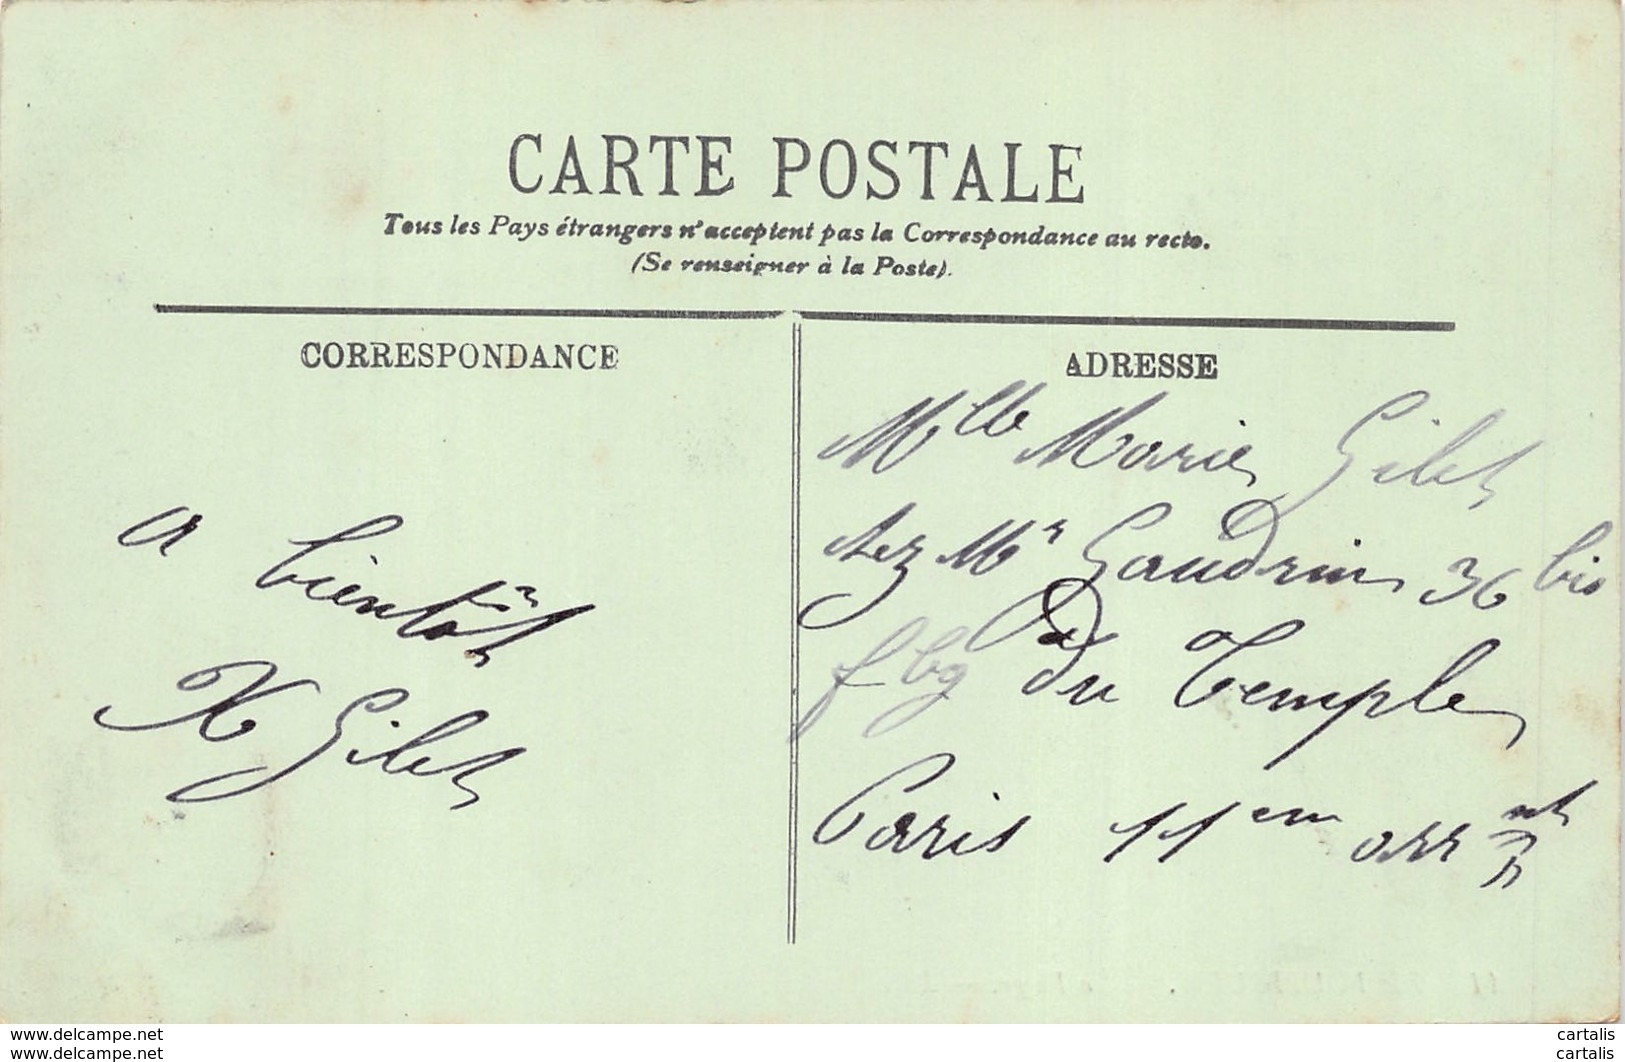 CARTE POSTALE
Tous les Pays étrangers n'acceptent pas la Correspondance au recto.
(Se renseigner à la Poste).
CORRESPONDANCE
a bientôt
X Gilet
ADRESSE
Mlle Marie Gilet
chez Mr Gaudrin 36 bis
fbg du Temple
Paris 11em arrnt
www.delcampe.net
www.delcampe.net
cartalis
cartalis